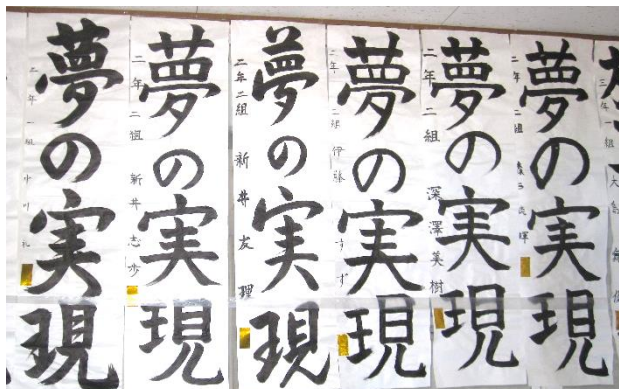 三年 一組 大島
夢の実現
二年 二組
夢の実現
二年 二組 深澤美樹
夢の実現
二年 二組 伊藤 すず
夢の実現
二年二組 新井友理
夢の実現
二年 二組 新井志歩
夢の実現
二年 一組 中川